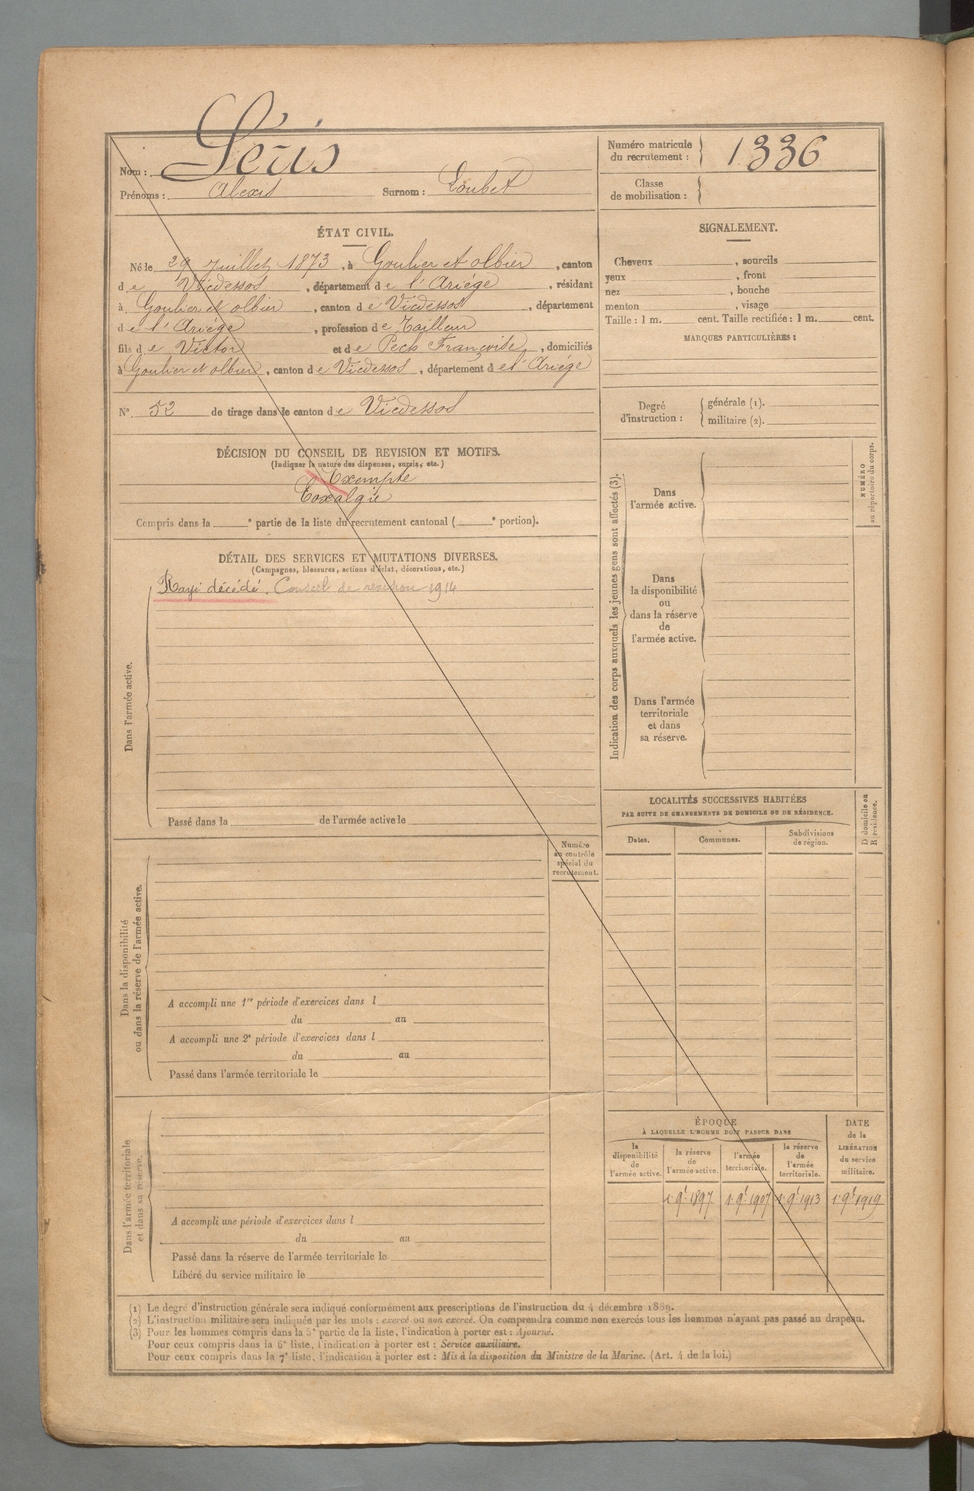 Nom : Séris
Prénoms : Alexis Surnom : Loubet
Numéro matricule du recrutement : 1336
Classe de mobilisation :
ÉTAT CIVIL.
Né le 29 Juillet 1873, à Goulier et olbier, canton
de Vicdessos, département de l'Ariége, résidant
à Goulier et olbier, canton de Vicdessos, département
de l'Ariége, profession de Tailleur
fils de Victor et de Pech Françoise, domiciliés
à Goulier et olbier, canton de Vicdessos, département de l'Ariége
N° 52 de tirage dans le canton de Vicdessos
DÉCISION DU CONSEIL DE REVISION ET MOTIFS.
(Indiquer la nature des dispenses, sursis, etc.)
Exempté
Coxalgie
Compris dans la e partie de la liste du recrutement cantonal ( e portion).
DÉTAIL DES SERVICES ET MUTATIONS DIVERSES.
(Campagnes, blessures, actions d'éclat, décorations, etc.)
Dans l'armée active.
Rayé décédé. Conseil de revision 1914
Passé dans la de l'armée active le
Dans la disponibilité
ou dans la réserve de l'armée active.
Numéro
au contrôle
spécial du
recrutement.
A accompli une 1re période d'exercices dans l
du au
A accompli une 2e période d'exercices dans l
du au
Passé dans l'armée territoriale le
Dans l'armée territoriale
et dans sa réserve.
A accompli une période d'exercices dans l
du au
Passé dans la réserve de l'armée territoriale le
Libéré du service militaire le
SIGNALEMENT.
Cheveux , sourcils
yeux , front
nez , bouche
menton , visage
Taille : 1 m. cent. Taille rectifiée : 1 m. cent.
MARQUES PARTICULIÈRES :
Degré d'instruction :
générale (1).
militaire (2).
Indication des corps auxquels les jeunes gens sont affectés (3).
NUMÉRO
au répertoire du corps.
Dans
l'armée active.
Dans
la disponibilité
ou
dans la réserve
de
l'armée active.
Dans l'armée
territoriale
et dans
sa réserve.
LOCALITÉS SUCCESSIVES HABITÉES
PAR SUITE DE CHANGEMENTS DE DOMICILE OU DE RÉSIDENCE.
Dates. Communes. Subdivisions de région.
D domicile ou
R résidence.
ÉPOQUE
À LAQUELLE L'HOMME DOIT PASSER DANS
la disponibilité de l'armée active.
la réserve de l'armée active.
l'armée territoriale.
la réserve de l'armée territoriale.
DATE de la LIBÉRATION du service militaire.
1 9bre 1897 1 9bre 1907 1 9bre 1913 1 9bre 1919
(1) Le degré d'instruction générale sera indiqué conformément aux prescriptions de l'instruction du 4 décembre 1889.
(2) L'instruction militaire sera indiquée par les mots : exercé ou non exercé. On comprendra comme non exercés tous les hommes n'ayant pas passé au drapeau.
(3) Pour les hommes compris dans la 5e partie de la liste, l'indication à porter est : Ajourné.
Pour ceux compris dans la 6e liste, l'indication à porter est : Service auxiliaire.
Pour ceux compris dans la 7e liste, l'indication à porter est : Mis à la disposition du Ministre de la Marine. (Art. 4 de la loi.)